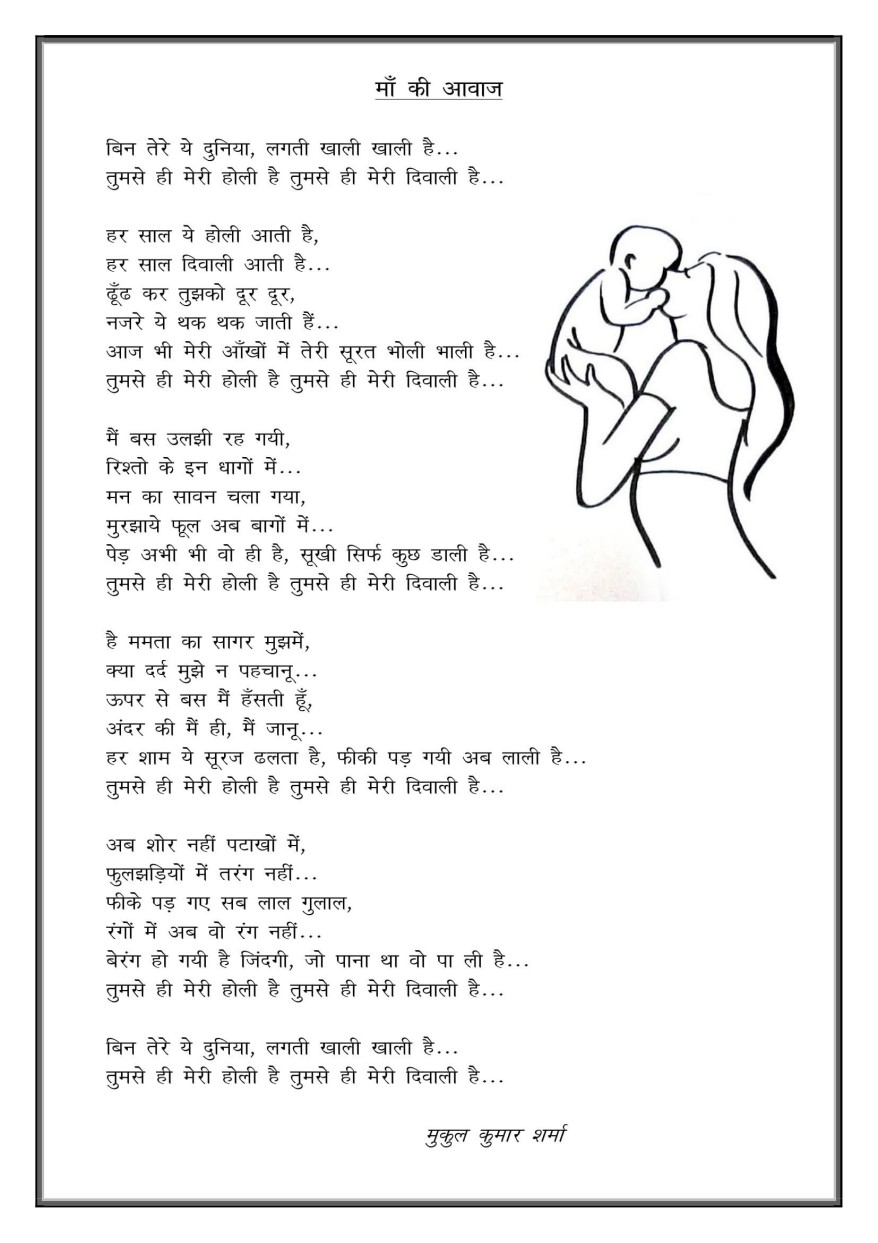 माँ की आवाज
बिन तेरे ये दुनिया, लगती खाली खाली है...
तुमसे ही मेरी होली है तुमसे ही मेरी दिवाली है...
हर साल ये होली आती है,
हर साल दिवाली आती है...
ढूँढ कर तुझको दूर दूर,
नजरे ये थक थक जाती हैं...
आज भी मेरी आँखों में तेरी सूरत भोली भाली है...
तुमसे ही मेरी होली है तुमसे ही मेरी दिवाली है...
मैं बस उलझी रह गयी,
रिश्तो के इन धागों में...
मन का सावन चला गया,
मुरझाये फूल अब बागों में...
पेड़ अभी भी वो ही है, सूखी सिर्फ कुछ डाली है...
तुमसे ही मेरी होली है तुमसे ही मेरी दिवाली है...
है ममता का सागर मुझमें,
क्या दर्द मुझे न पहचानू...
ऊपर से बस मैं हँसती हूँ,
अंदर की मैं ही, मैं जानू...
हर शाम ये सूरज ढलता है, फीकी पड़ गयी अब लाली है...
तुमसे ही मेरी होली है तुमसे ही मेरी दिवाली है...
अब शोर नहीं पटाखों में,
फुलझड़ियों में तरंग नहीं...
फीके पड़ गए सब लाल गुलाल,
रंगों में अब वो रंग नहीं...
बेरंग हो गयी है जिंदगी, जो पाना था वो पा ली है...
तुमसे ही मेरी होली है तुमसे ही मेरी दिवाली है...
बिन तेरे ये दुनिया, लगती खाली खाली है...
तुमसे ही मेरी होली है तुमसे ही मेरी दिवाली है...
मुकुल कुमार शर्मा